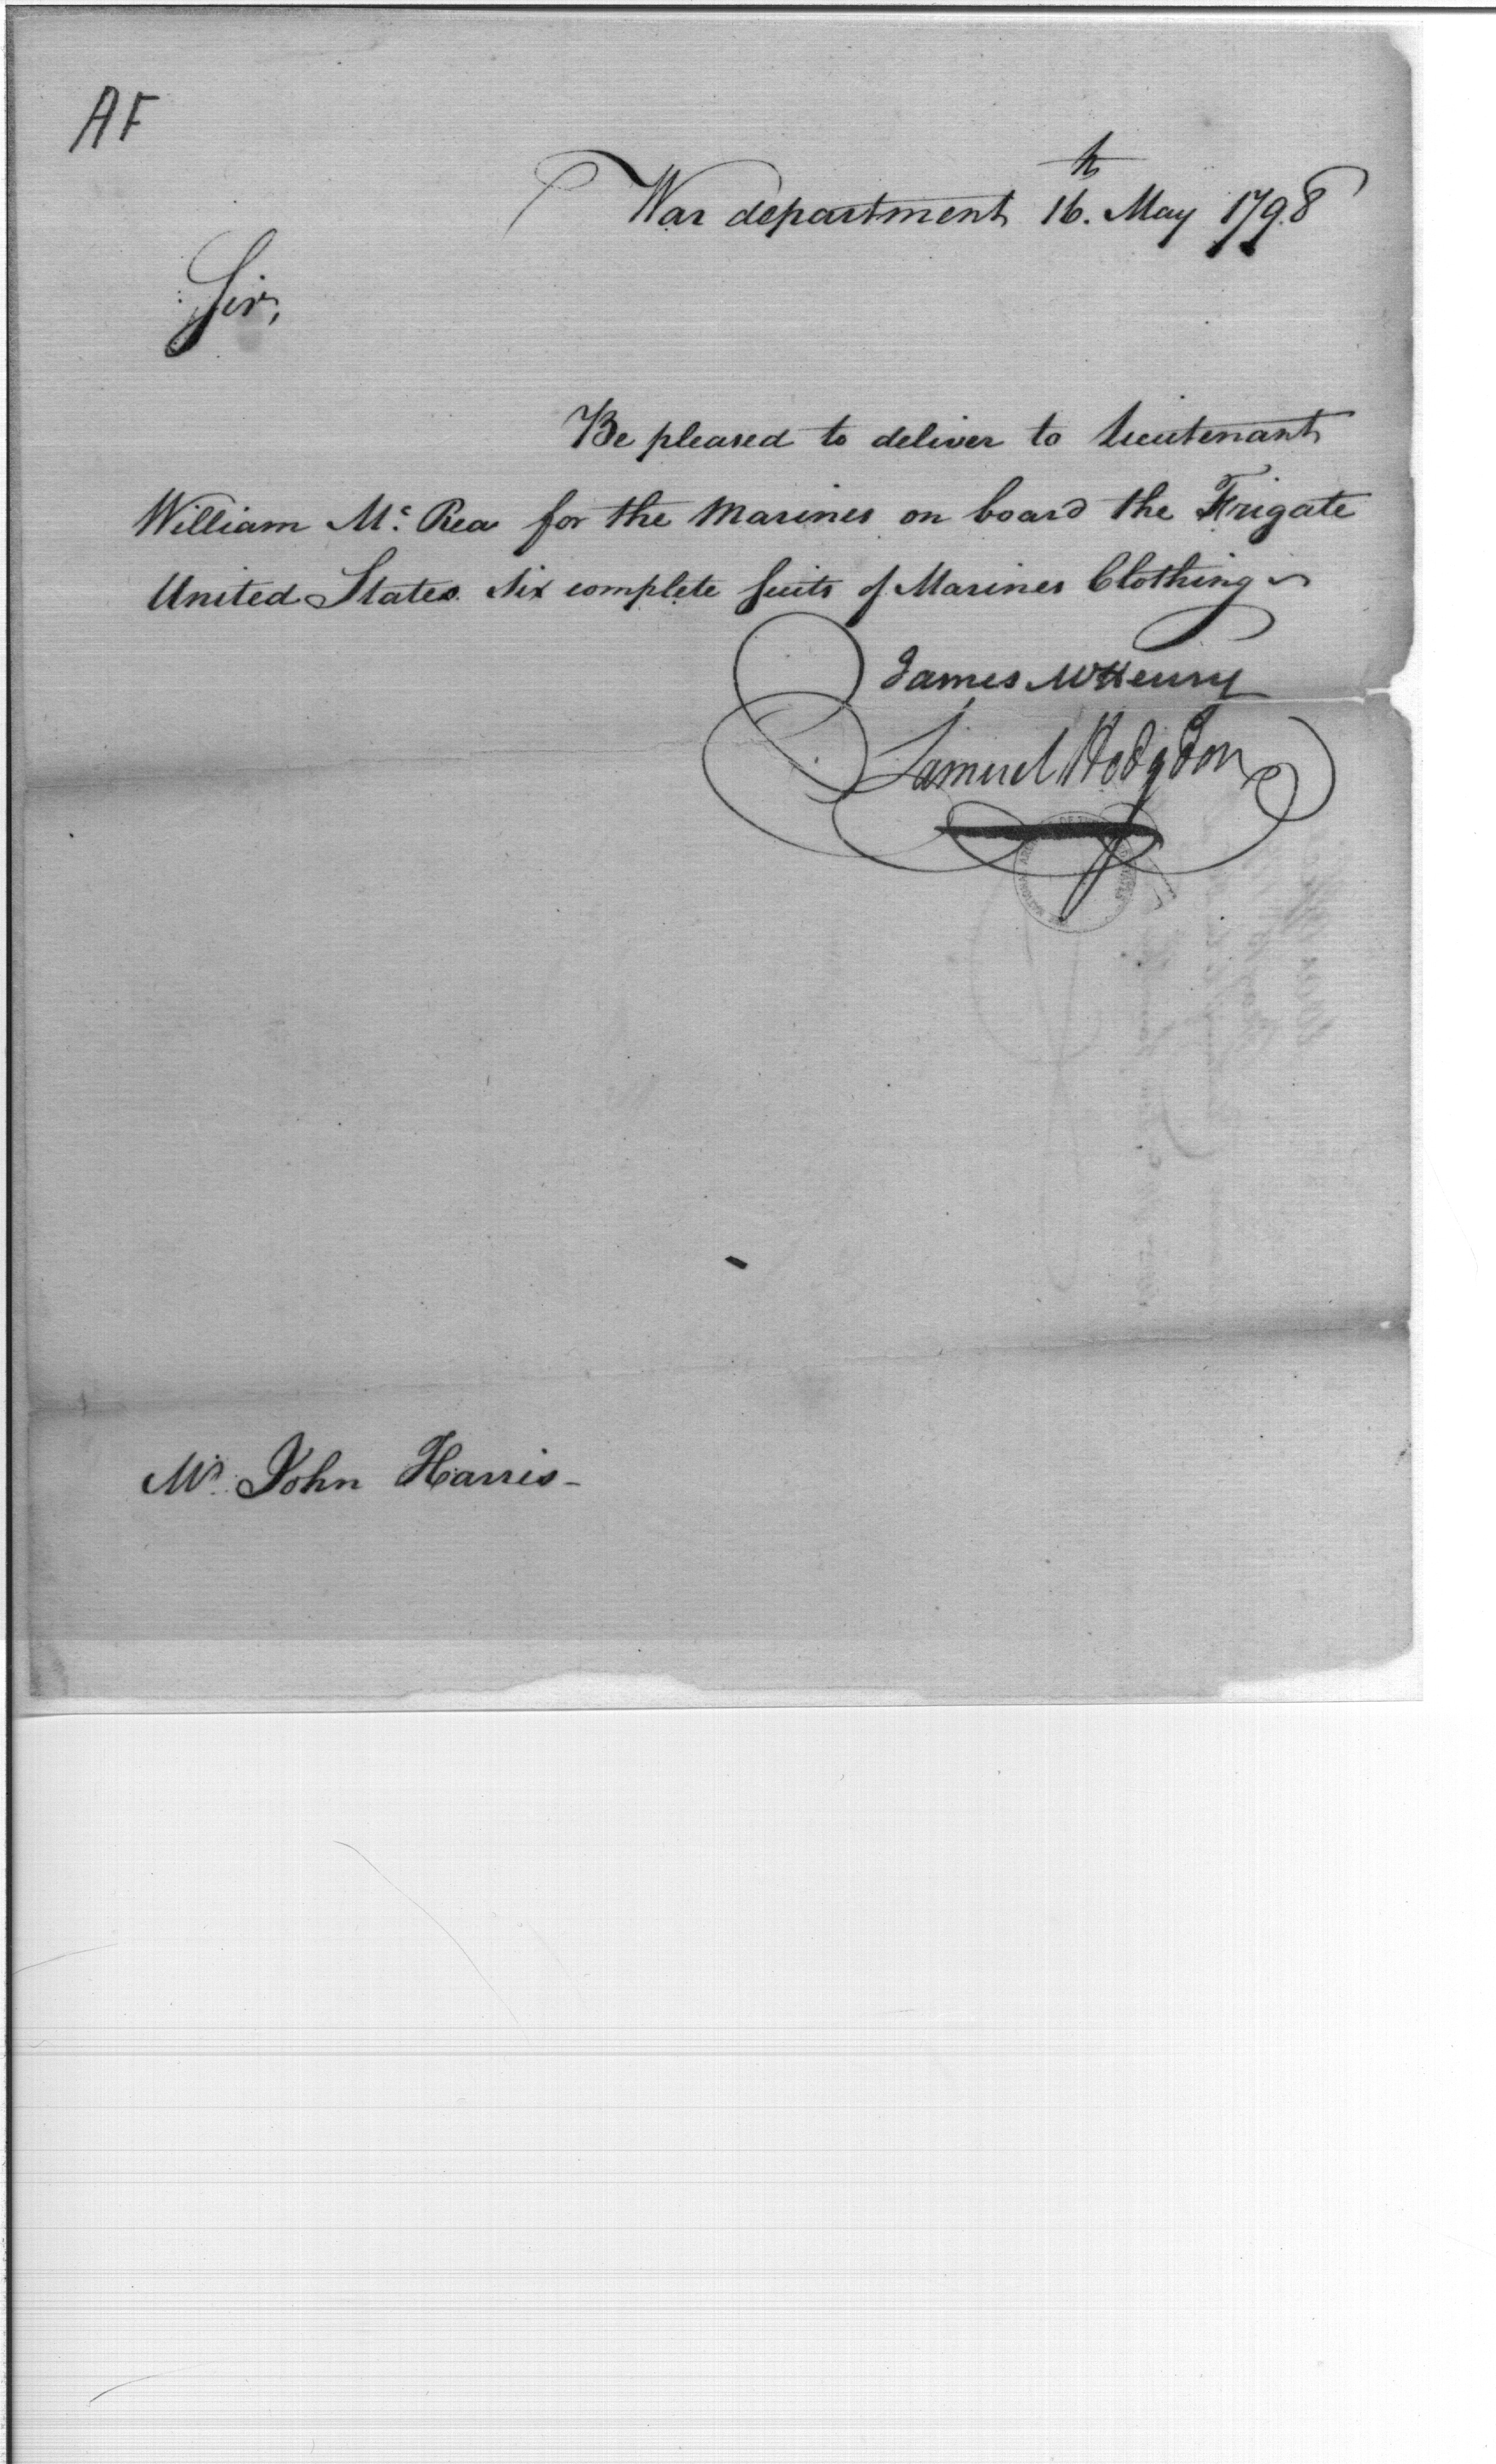 AF
War department 16th. May 1798
Sir,
Be pleased to deliver to Lieutenant
William Mc. Rea for the Marines on board the Frigate
United States six complete suits of Marines Clothing
James McHenry
Samuel Hodgdon
Mr. John Harris-